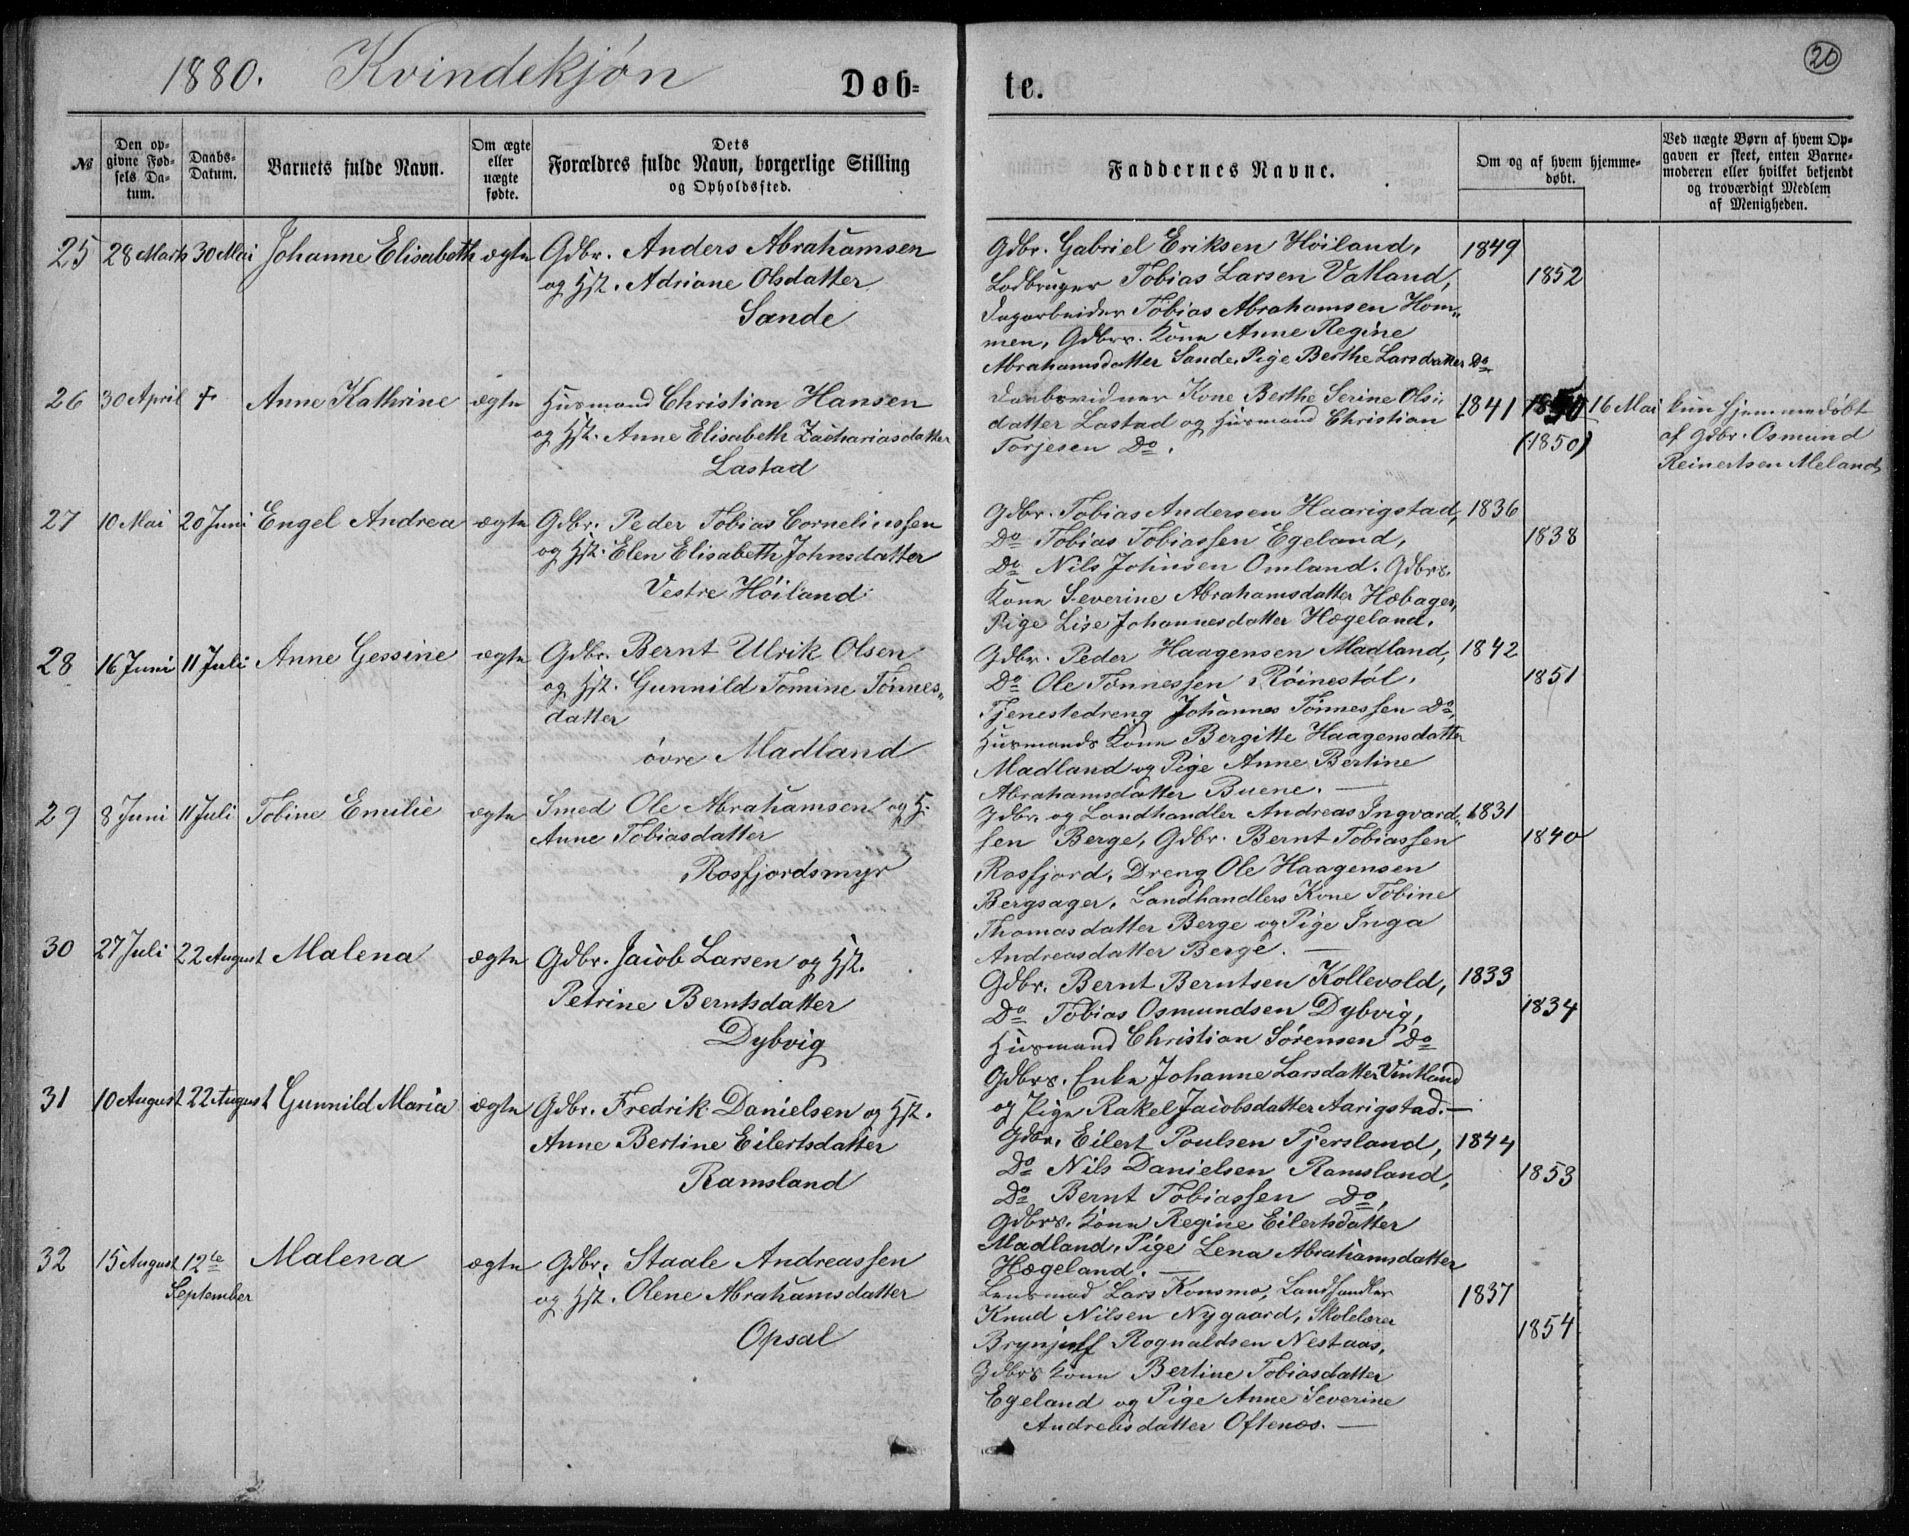 1880. Kvindekjøn
Døb=
te.
20
№
Den op-
givne Fød-
sels Da-
tum.
Daabs-
Datum.
Barnets fulde Navn.
Om ægte
eller
uægte
fødte.
Dets
Forældres fulde Navn, borgerlige Stilling
og Opholdssted.
Faddernes Navne.
Om og af hvem hjemme-
døbt.
Ved uægte Børn af hvem Op-
gaven er skeet, enten Barne-
moderen eller hvilket bekjendt
og troværdigt Medlem
af Menigheden.
25 28 Marts 30 Mai Johanne Elisabeth ægte Gdbr. Anders Abrahamsen
og Hst. Adriane Olsdatter
Sande
Gdbr. Gabriel Eriksen Höiland, 1849
Lodbruger Tobias Larsen Vatland, 1852
Dagarbeider Tobias Abrahamsen Hom„
men, Gdbrs. Kone Anne Regine
Abrahamsdatter Sande, Pige Berthe Larsdatter Do
26 30 April † Anne Kathrine ægte Husmand Christian Hansen
og Hst. Anne Elisabeth Zachariasdatter
Lastad
Daabsvidner Kone Berthe Serine Ols„ 1841 16 Mai kun hjemmedøbt
datter Lastad og Husmand Christian af Gdbr. Osmund
Torjesen Do. (1850) Reinertsen Meland
27 10 Mai 20 Juni Engel Andrea ægte Gdbr. Peder Tobias Corneliussen
og Hst. Elen Elisabeth Johnsdatter
Vestre Höiland
Gdbr. Tobias Andersen Haarigstad, 1836
Do Tobias Tobiassen Egeland, 1838
Do Nils Johnsen Omland. Gdbrs.
Kone Severine Abrahamsdatter Hæbager,
Pige Lise Johannesdatter Hægeland.
28 16 Juni 11 Juli Anne Gessine ægte Gdbr. Bernt Ulrik Olsen
og Hst. Gunnild Tomine Tönnes„
datter
övre Madland
Gdbr. Peder Haagensen Madland, 1842
Do Ole Tönnessen Röinestöl, 1851
Tjenestedreng Johannes Tönnessen Do,
Husmands Kone Bergitte Haagensdatter
Madland og Pige Anne Bertine
Abrahamsdatter Buene. —
29 8 Juni 11 Juli Tobine Emilie ægte Smed Ole Abrahamsen og H.
Anne Tobiasdatter
Rosfjordsmyr
Gdbr. og Landhandler Andreas Ingvard„ 1831
sen Berge, Gdbr. Bernt Tobiassen 1840
Rosfjord, Dreng Ole Haagensen
Bergsager, Landhandlers Kone Tobine
Thomasdatter Berge og Pige Inga
Andreasdatter Berge. —
30 27 Juli 22 August Malena ægte Gdbr. Jacob Larsen og Hst.
Petrine Berntsdatter
Dybvig
Gdbr. Bernt Berntsen Kollevold, 1833
Do Tobias Osmundsen Dybvig, 1834
Husmand Christian Sörensen Do
Gdbrs. Enke Johanne Larsdatter Vintland
og Pige Rakel Jacobsdatter Aarigstad. —
31 10 August 22 August Gunnild Maria ægte Gdbr. Fredrik Danielsen og Hst.
Anne Bertine Eilertsdatter
Ramsland
Gdbr. Eilert Poulsen Tjersland, 1844
Do Nils Danielsen Ramsland, 1853
Do Bernt Tobiassen Do,
Gdbrs. Kone Regine Eilertsdatter
Madland, Pige Lena Abrahamsdatter
Hægeland. —
32 15 August 12te September Malena ægte Gdbr. Staale Andreassen
og Hst. Olene Abrahamsdatter
Opsal
Lensmad Lars Konsmo, Landhandler 1837
Knud Nilsen Nygaard, Skolelærer 1854
Brynjulf Rognaldsen Nestaas,
Gdbrs Kone Bertine Tobiasdatter
Egeland og Pige Anne Severine
Andreasdatter Oftenes. —